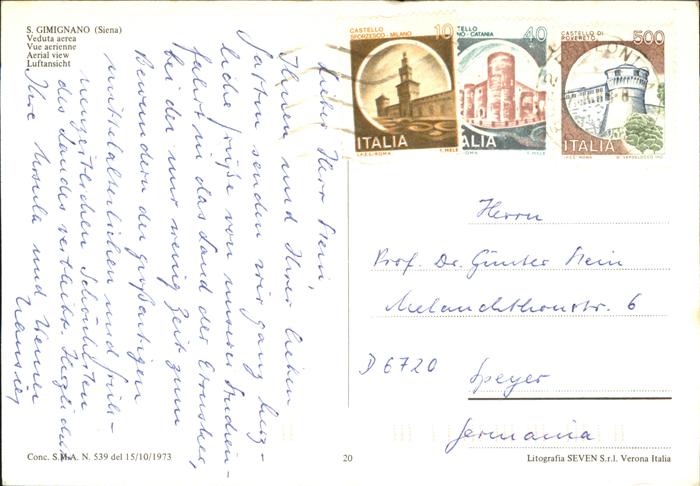 S. GIMIGNANO (Siena)
Veduta aerea
Vue aerienne
Aerial view
Luftansicht
Lieber Herr Stein,
Ihnen und Ihrer lieben
Gattin senden wir ganz herz-
liche Grüße von unserer Studien-
fahrt in das Land der Etrusker,
bei der nur wenig Zeit zum
Bewundern der großartigen
mittelalterlichen und früh-
neuzeitlichen Schönheiten
des Landes verbleibt. Herzlichst
Ihre Ursula und Werner
CASTELLO
SFORZESCO - MILANO
10
ITALIA
I.P.S.-ROMA
T. MELE
CASTELLO
NO - CATANIA
40
ITALIA
ROMA
T. MELE
CASTELLO DI
ROVERETO
500
ITALIA
I.P.Z.S. ROMA
Herrn
Prof. Dr. Günter Stein
Melanchthonstr. 6
D 6720
Speyer
Germania
Conc. S.M.A. N. 539 del 15/10/1973
20
Litografia SEVEN S.r.l. Verona Italia